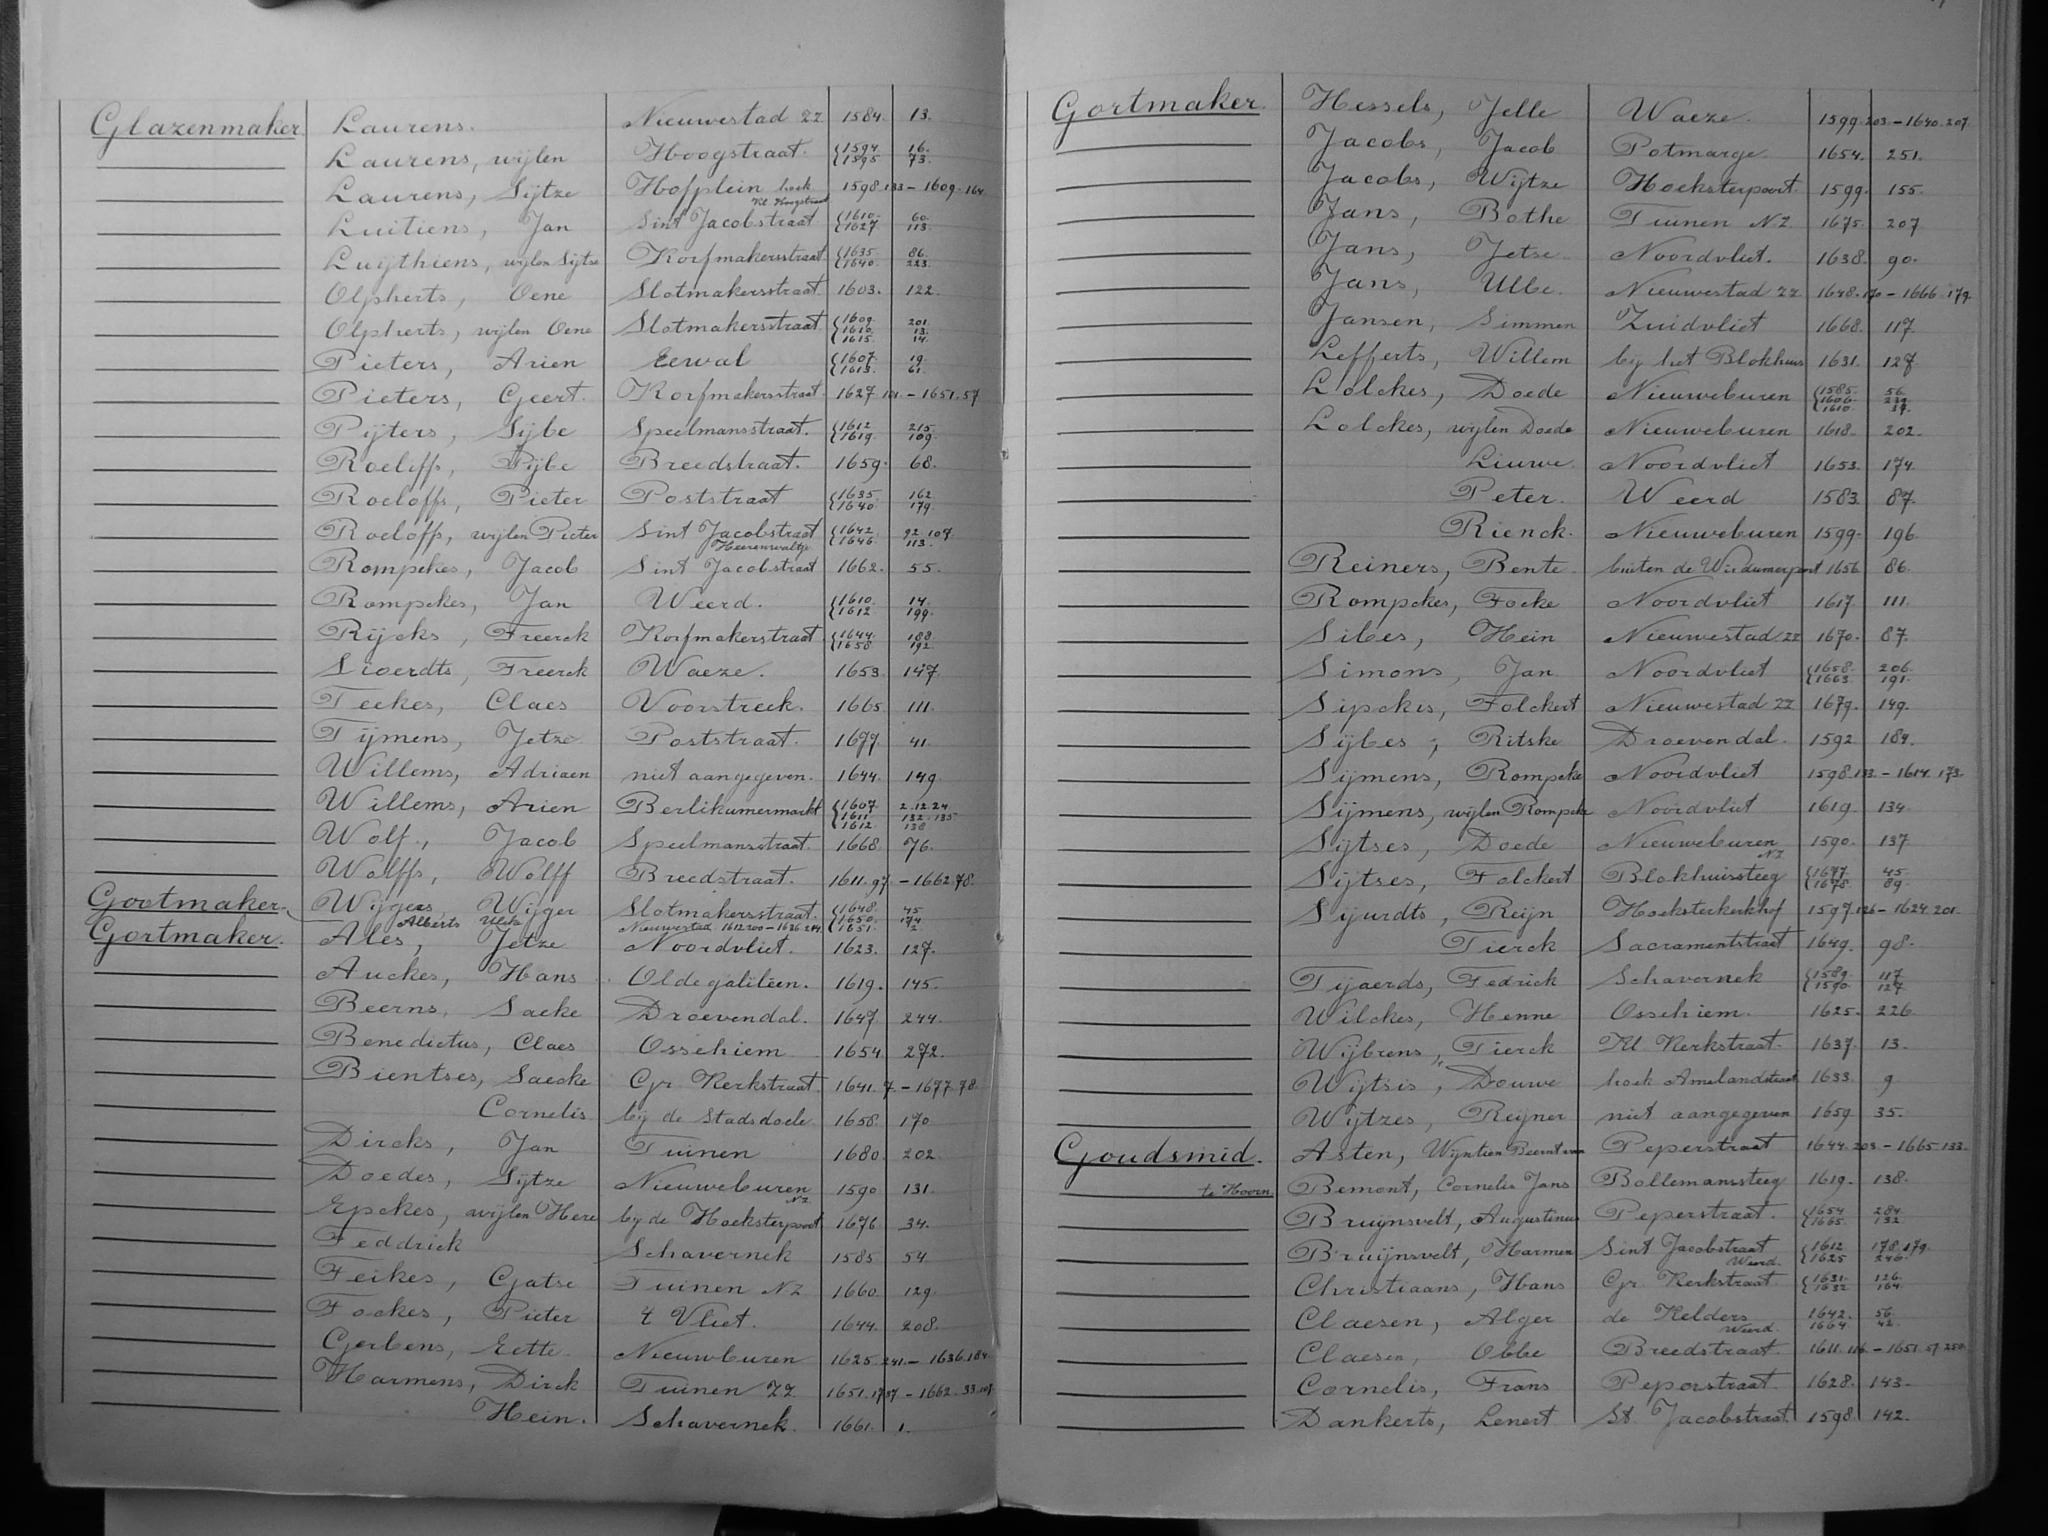 Glazenmaker. Laurens. Nieuwestad ZZ 1584. 13.
Laurens, wijlen Hoogstraat. 1594. 16.
1595 73.
Laurens, Sijtze Hofplein hoek 1598.133 - 1609.164.
Kl. Hoogstraat
Luitiens, Jan Sint Jacobstraat 1610. 60.
1627 113.
Luijthiens, wijlen Sijtse Korfmakersstraat. 1635. 86.
1640. 223.
Olpherts, Oene Slotmakersstraat. 1603. 122.
Olpherts, wijlen Oene Slotmakersstraat. 1609. 201.
1610. 13.
1615. 14.
Pieters, Arien Eewal 1607. 19.
1613. 61.
Pieters, Geert. Korfmakersstraat. 1627.101. - 1651.57
Pijters, Sijbe Speelmansstraat. 1612 215.
1619. 109.
Roeliffs, Pijbe Breedstraat. 1659. 68.
Roeloffs, Pieter Poststraat 1635. 162
1640 179.
Roeloffs, wijlen Pieter Sint Jacobstraat 1642. 92.107.
Heerenwaltje 1646. 113.
Rompekes, Jacob Sint Jacobstraat 1662. 55.
Rompekes, Jan Weerd. 1610. 14.
1612 199.
Rijcks, Freerck Korfmakerstraat. 1644. 188
1658 192.
Sioerdts, Freerck Waeze. 1653. 147
Teekes, Claes Voorstreek. 1665 111.
Tijmens, Jetze Poststraat. 1677. 41.
Willems, Adriaen niet aangegeven. 1644. 149.
Willems, Arien Berlikumermarkt 1607. 2.12.24.
1611. 132.135
1612. 138
Wolf., Jacob Speelmansstraat. 1668. 76.
Wolffs, Wolff Breedstraat. 1611.97. - 1662.78.
Gootmaker. Wijgers Wijger Slotmakersstraat. 1648. 45.
1650. 174
Alberts Ulck Nieuwestad. 1612.200 - 1636.214. 1651. 2
Gortmaker. Ales, Jetze Noordvliet. 1623. 127.
Auckes, Hans Oldegaliliëen. 1619. 145.
Beerns, Saeke Droevendal. 1647. 244.
Benedictus, Claes Ossehiem 1654. 272.
Bientses, Saecke Gr. Kerkstraat. 1641.7. - 1677.78
Cornelis. bij de Stadsdoele. 1658. 170
Dircks, Jan Tuinen 1680. 202.
Doedes, Sijtze Nieuweburen 1590 131.
NZ.
Epekes, wijlen Here bij de Hoeksterpoort. 1676. 34.
Feddrick Schavernek 1585 54.
Feikes, Gatse Tuinen NZ 1660. 129.
Fockes, Pieter 't Vliet. 1644. 208.
Gerbens, Eette. Nieuwburen 1625.241. - 1636.184.
Harmens, Dirck Tuinen ZZ. 1651.1737 - 1662.33.107
Hein. Schavernek. 1661. 1.
Gortmaker. Hessels, Jelle Waeze. 1599.203. - 1640.207.
Jacobs, Jacob Potmarge. 1654. 251.
Jacobs, Wijtze Hoeksterpoort. 1599. 155.
Jans, Bothe Tuinen NZ. 1675. 207
Jans, Jetse Noordvliet. 1638. 90.
Jans, Ulbe. Nieuwestad ZZ 1648.170 - 1666.179.
Jansen, Simmen Zuidvliet 1668. 117.
Lefferts, Willem bij het Blokhuis 1631. 127.
Lolckes, Doede Nieuweburen 1585. 56.
1606.
1610. 37.
Lolckes, wijlen Doede Nieuweburen 1618. 202.
Liuwe. Noordvliet 1653. 174.
Peter. Weerd 1583. 87.
Rienck. Nieuweburen 1599. 196.
Reiners, Bente buiten de Wirdumerpoort 1656. 86.
Rompckes, Focke Noordvliet 1617. 111.
Sibes, Hein Nieuwestad ZZ 1670. 87.
Simons, Jan Noordvliet 1658. 206.
1663. 191.
Sipckes, Folckert Nieuwestad ZZ 1679. 149.
Sijbes, Ritske Droevendal. 1592 184.
Sijmens, Rompcke Noordvliet 1598.133. - 1614.173.
Sijmens, wijlen Rompcke Noordvliet 1619. 134
Sijtses, Doede Nieuweburen 1590. 137
NZ
Sijtses, Folckert Blokhuissteeg 1677. 45.
1678. 89.
Sijurdts, Reijn Hoeksterkerkhof 1597.126 - 1624.201.
Tierck Sacramentstraat 1649. 98.
Tjaerds, Fedrick Schavernek 1589. 117
1590. 127
Wilckes, Henne Ossehiem. 1625. 226
Wijbrens, Tierck Kl. Kerkstraat. 1637. 13.
Wijtsis, Douwe hoek Amelandstraat 1633. 9.
Wijtzes, Reijner niet aangegeven 1659. 35.
Goudsmid. Asten, Wijntien Beernt van Peperstraat 1644.203. - 1665.133.
te Hoorn. Bemont, Cornelis Jans Bollemanssteeg 1619. 138.
Bruijnsvelt, Augustinus Peperstraat. 1654 284.
1665. 132.
Bruijnsvelt, Harmen Sint Jacobstraat 1612 178.179.
Weerd. 1625 246.
Christiaans, Hans Gr. Kerkstraat 1631. 126.
1632 164.
Claesen, Alger de Kelders 1642. 56.
Weerd. 1664. 42.
Claesen, Obbe Breedstraat. 1611.116. - 1651.57.250.
Cornelis, Frans Peperstraat. 1628. 143.
Dankerts, Lenert St. Jacobstraat. 1598. 142.